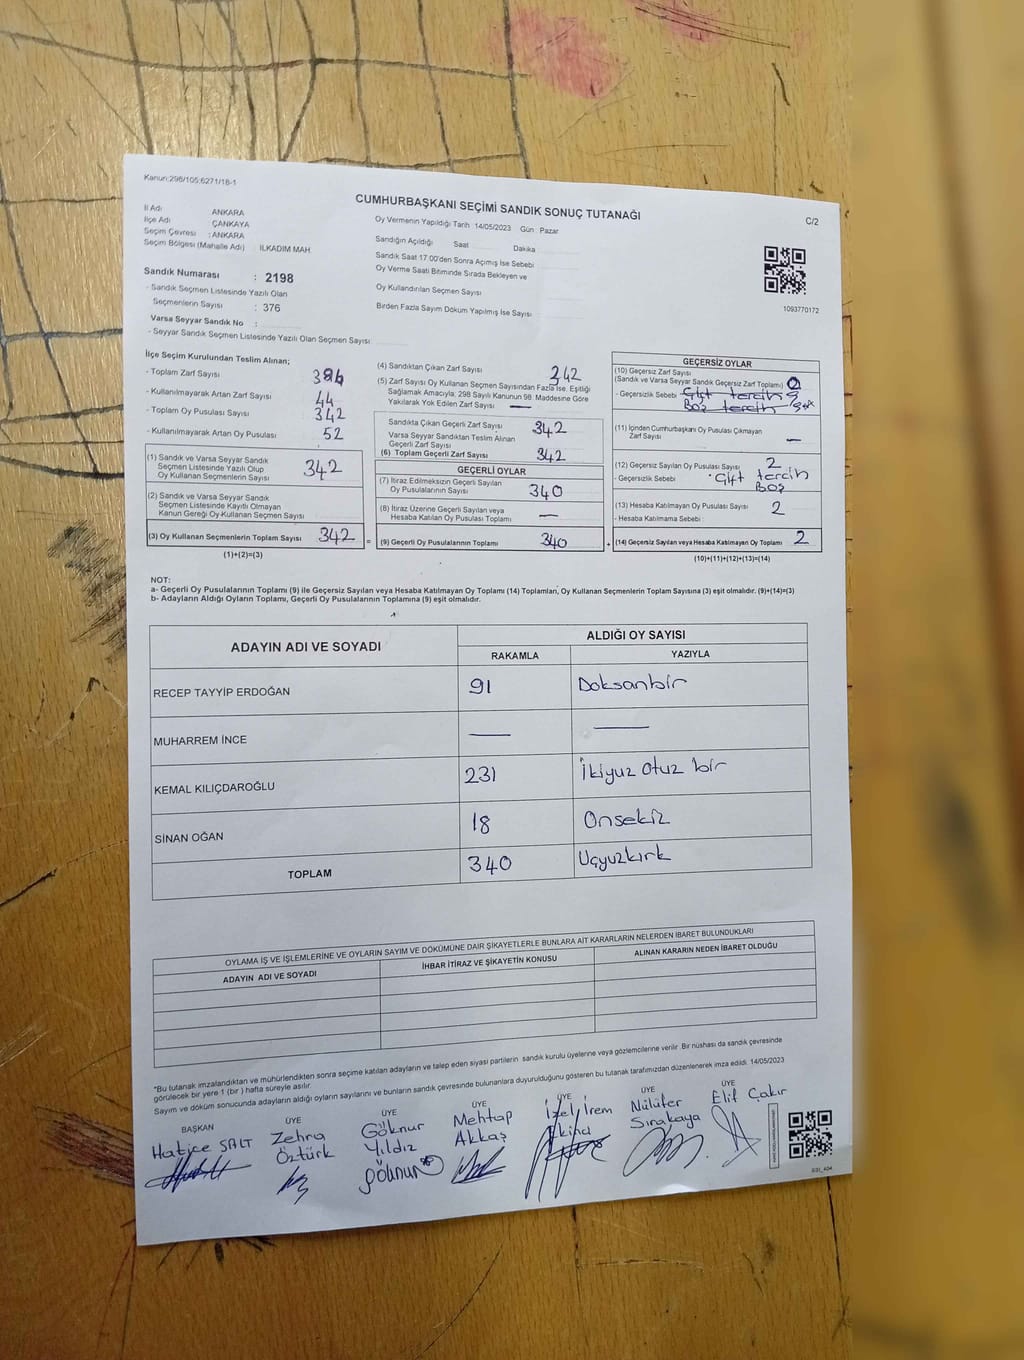 Kanun:298/105;6271/18-1
CUMHURBAŞKANI SEÇİMİ SANDIK SONUÇ TUTANAĞI
C/2
İl Adı ANKARA
İlçe Adı ÇANKAYA
Seçim Çevresi : ANKARA
Seçim Bölgesi (Mahalle Adı) : İLKADIM MAH.
Oy Vermenin Yapıldığı Tarih 14/05/2023 Gün Pazar
Sandığın Açıldığı Saat Dakika
Sandık Saat 17.00'den Sonra Açımış İse Sebebi
Oy Verme Saati Bitiminde Sırada Bekleyen ve
Oy Kullandırılan Seçmen Sayısı
Birden Fazla Sayım Döküm Yapılmış İse Sayısı
1093770172
Sandık Numarası : 2198
- Sandık Seçmen Listesinde Yazılı Olan
Seçmenlerin Sayısı : 376
Varsa Seyyar Sandık No :
- Seyyar Sandık Seçmen Listesinde Yazılı Olan Seçmen Sayısı :
İlçe Seçim Kurulundan Teslim Alınan;
- Toplam Zarf Sayısı
- Kullanılmayarak Artan Zarf Sayısı 44
- Toplam Oy Pusulası Sayısı 342
- Kullanılmayarak Artan Oy Pusulası 52
(1) Sandık ve Varsa Seyyar Sandık
Seçmen Listesinde Yazılı Olup
Oy Kullanan Seçmenlerin Sayısı 342
(2) Sandık ve Varsa Seyyar Sandık
Seçmen Listesinde Kayıtlı Olmayan
Kanun Gereği Oy Kullanan Seçmen Sayısı
(3) Oy Kullanan Seçmenlerin Toplam Sayısı 342 =
(1)+(2)=(3)
(4) Sandıktan Çıkan Zarf Sayısı 342
(5) Zarf Sayısı Oy Kullanan Seçmen Sayısından Fazla İse, Eşitliği
Sağlamak Amacıyla; 298 Sayılı Kanunun 98. Maddesine Göre
Yakılarak Yok Edilen Zarf Sayısı —
Sandıkta Çıkan Geçerli Zarf Sayısı 342
Varsa Seyyar Sandıktan Teslim Alınan
Geçerli Zarf Sayısı
(6) Toplam Geçerli Zarf Sayısı 342
GEÇERLİ OYLAR
(7) İtiraz Edilmeksizin Geçerli Sayılan
Oy Pusulalarının Sayısı 340
(8) İtiraz Üzerine Geçerli Sayılan veya
Hesaba Katılan Oy Pusulası Toplamı —
(9) Geçerli Oy Pusulalarının Toplamı 340 +
GEÇERSİZ OYLAR
(10) Geçersiz Zarf Sayısı
(Sandık ve Varsa Seyyar Sandık Geçersiz Zarf Toplamı)
- Geçersizlik Sebebi Çift tercih
Boş tercih
(11) İçinden Cumhurbaşkanı Oy Pusulası Çıkmayan
Zarf Sayısı —
(12) Geçersiz Sayılan Oy Pusulası Sayısı 2
- Geçersizlik Sebebi Çift tercih
Boş
(13) Hesaba Katılmayan Oy Pusulası Sayısı 2
- Hesaba Katılmama Sebebi :
(14) Geçersiz Sayılan veya Hesaba Katılmayan Oy Toplamı 2
(10)+(11)+(12)+(13)=(14)
NOT:
a- Geçerli Oy Pusulalarının Toplamı (9) ile Geçersiz Sayılan veya Hesaba Katılmayan Oy Toplamı (14) Toplamları, Oy Kullanan Seçmenlerin Toplam Sayısına (3) eşit olmalıdır. (9)+(14)=(3)
b- Adayların Aldığı Oyların Toplamı, Geçerli Oy Pusulalarının Toplamına (9) eşit olmalıdır.
ADAYIN ADI VE SOYADI ALDIĞI OY SAYISI
RAKAMLA YAZIYLA
RECEP TAYYİP ERDOĞAN 91 Doksanbir
MUHARREM İNCE — —
KEMAL KILIÇDAROĞLU 231 İkiyuz Otuz bir
SİNAN OĞAN 18 Onsekiz
TOPLAM 340 Uçyuzkırk
OYLAMA İŞ VE İŞLEMLERİNE VE OYLARIN SAYIM VE DÖKÜMÜNE DAİR ŞİKAYETLERLE BUNLARA AİT KARARLARIN NELERDEN İBARET BULUNDUKLARI
ADAYIN ADI VE SOYADI İHBAR İTİRAZ VE ŞİKAYETİN KONUSU ALINAN KARARIN NEDEN İBARET OLDUĞU
*Bu tutanak imzalandıktan ve mühürlendikten sonra seçime katılan adayların ve talep eden siyasi partilerin sandık kurulu üyelerine veya gözlemcilerine verilir. Bir nüshası da sandık çevresinde
görülecek bir yere 1 (bir) hafta süreyle asılır.
Sayım ve döküm sonucunda adayların aldığı oyların sayılarını ve bunların sandık çevresinde bulunanlara duyurulduğunu gösteren bu tutanak tarafımızdan düzenlenerek imza edildi. 14/05/2023
BAŞKAN ÜYE ÜYE ÜYE ÜYE ÜYE ÜYE
Hatice SALT Zehra Öztürk Göknur Yıldız Mehtap Akkaş İzel İrem Ekinci Nülüfer Sırakaya Elif Çakır
Göknur